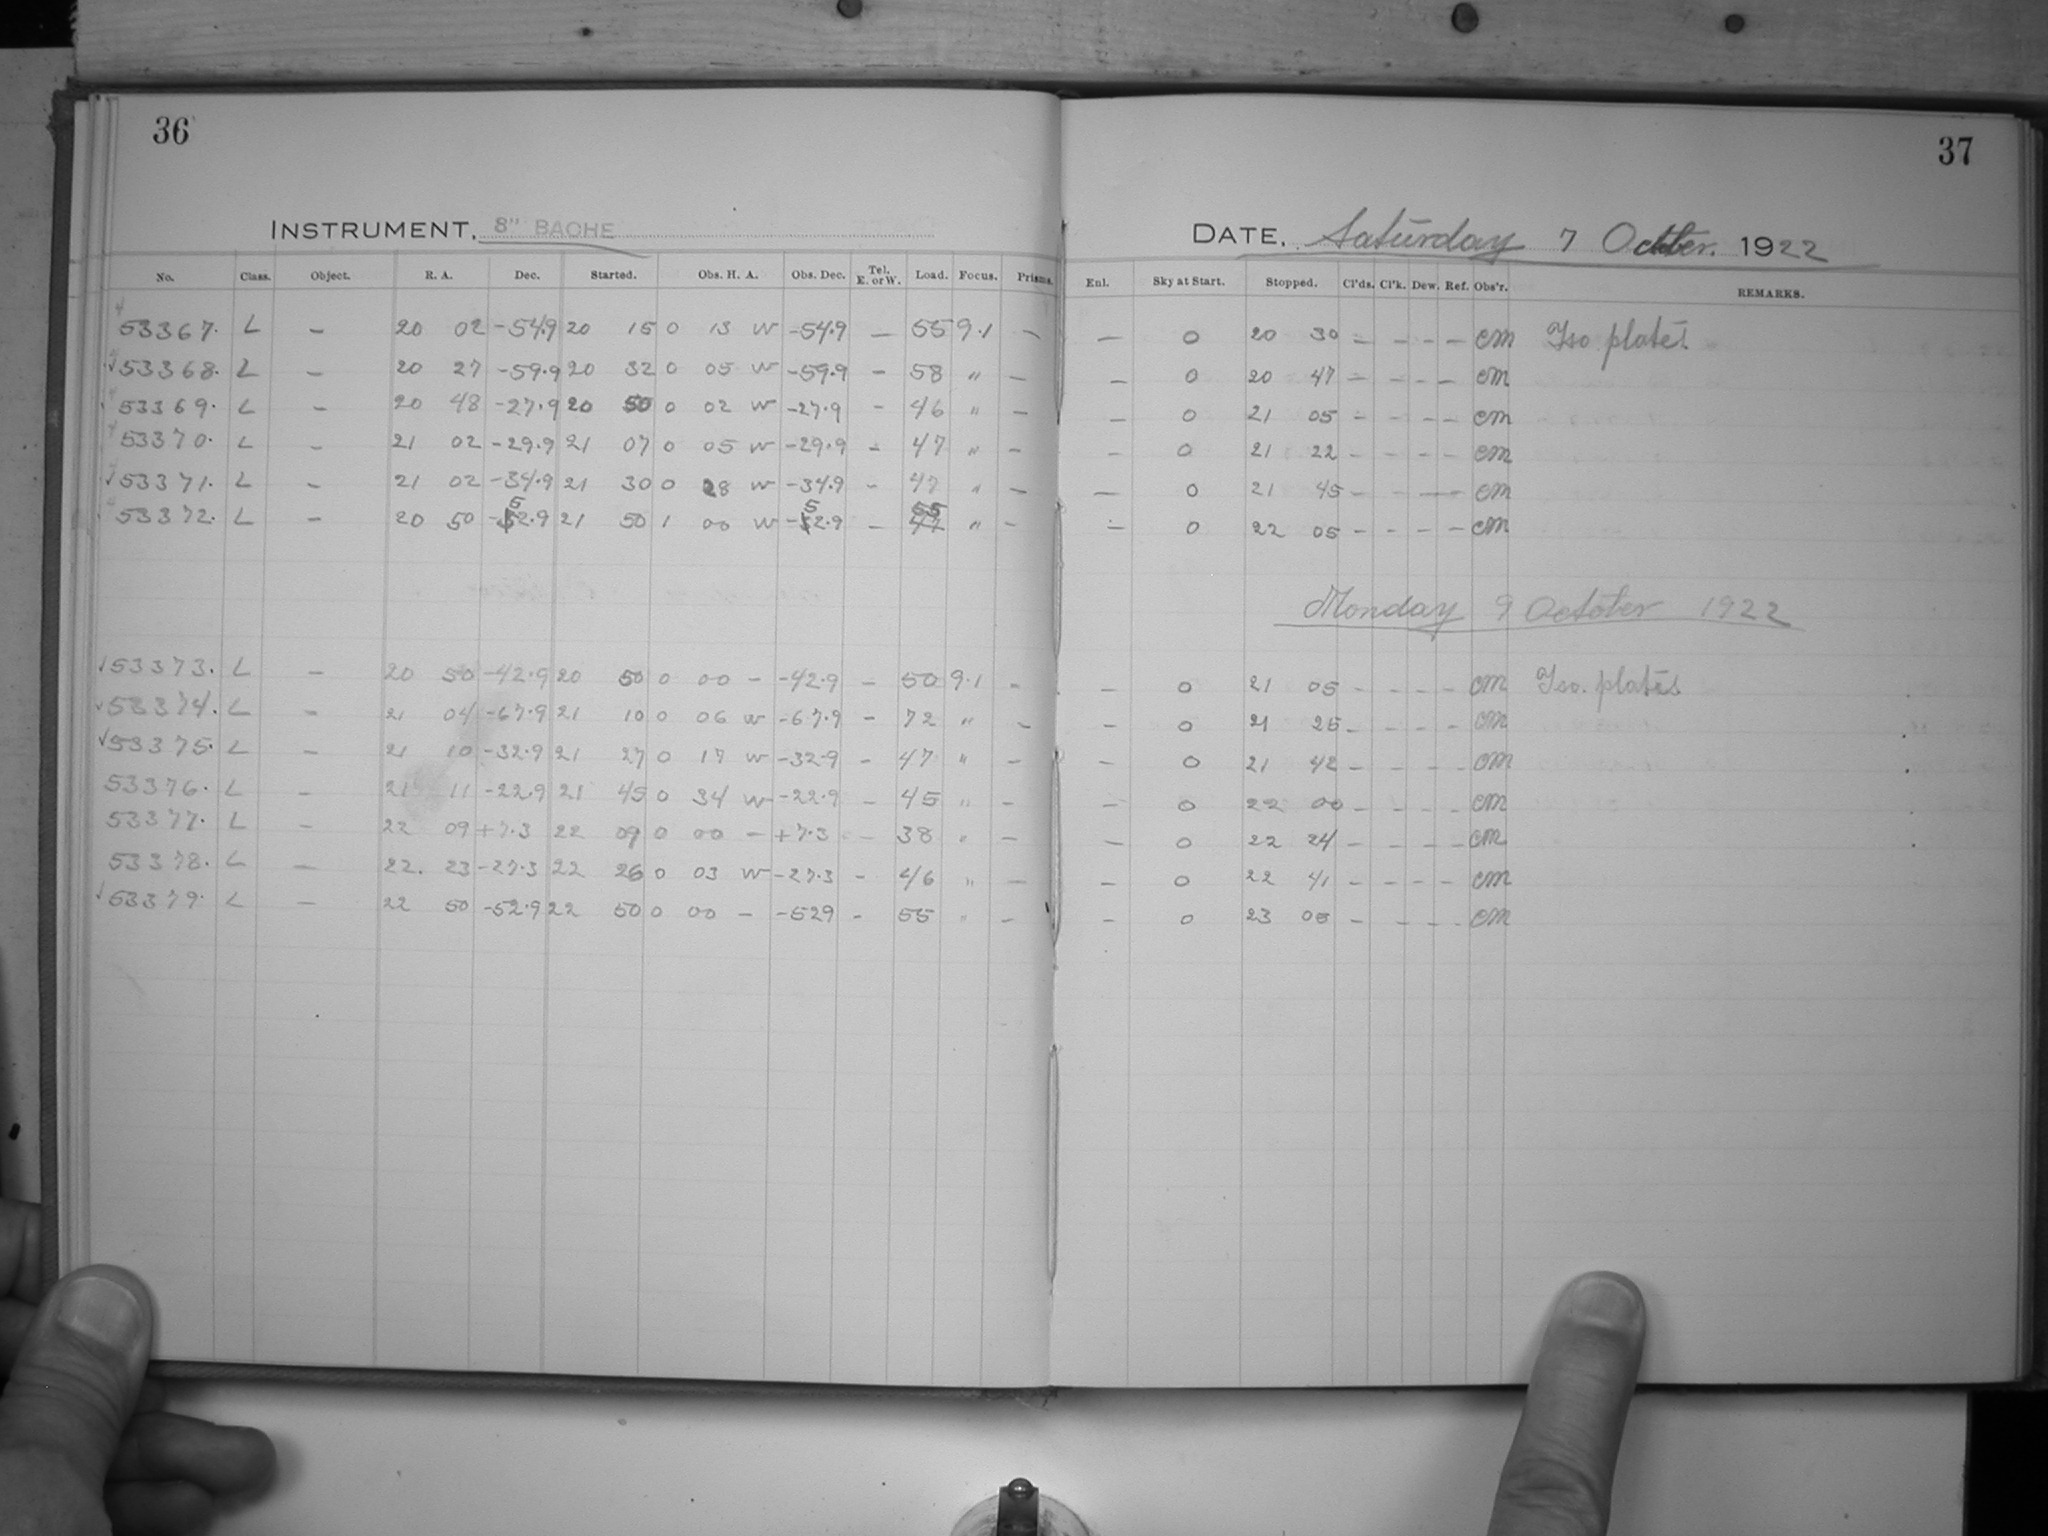 36
INSTRUMENT. 8" BACHE
No. Class. Object. R. A. Dec. Started. Obs. H. A. Obs. Dec. Tel. E. or W. Load. Focus. Prisms.
53367. L — 20 02 -54.9 20 15 0 13 W -54.9 — 55 9.1 —
√53368. L — 20 27 -59.9 20 32 0 05 W -59.9 — 58 " —
53369. L — 20 48 -27.9 20 50 0 02 W -27.9 - 46 " —
53370. L — 21 02 -29.9 21 07 0 05 W -29.9 - 47 " —
√53371. L — 21 02 -34.9 21 30 0 28 W -34.9 - 47 " —
53372. L — 20 50 -52.9 21 50 1 00 W -52.9 — 55 " —
√53373. L — 20 50 -42.9 20 50 0 00 — -42.9 — 50 9.1 —
√53374. L — 21 04 -67.9 21 10 0 06 W -67.9 - 72 " —
√53375. L — 21 10 -32.9 21 27 0 17 W -32.9 - 47 " —
53376. L — 21 11 -22.9 21 45 0 34 W -22.9 - 45 " —
53377. L — 22 09 +7.3 22 09 0 00 — +7.3 — 38 " —
53378. L — 22. 23 -27.3 22 26 0 03 W -27.3 - 46 " —
√53379. L — 22 50 -52.9 22 50 0 00 — -529 - 55 " —
37
DATE. Saturday 7 October. 1922
Enl. Sky at Start. Stopped. Cl'ds. Cl'k. Dew. Ref. Obs'r. REMARKS.
— 0 20 30 — - - — CM Iso plates
— 0 20 47 — - - — CM
— 0 21 05 - - - - CM
— 0 21 22 - - - - CM
— 0 21 45 - - — — CM
— 0 22 05 - - - - CM
Monday 9 October 1922
— 0 21 05 - - - - CM Iso. plates
— 0 21 25 - - - - CM
— 0 21 42 - - - - CM
— 0 22 00 - - - - CM
— 0 22 24 - - - - CM
— 0 22 41 - - - - CM
— 0 23 05 - - - - CM